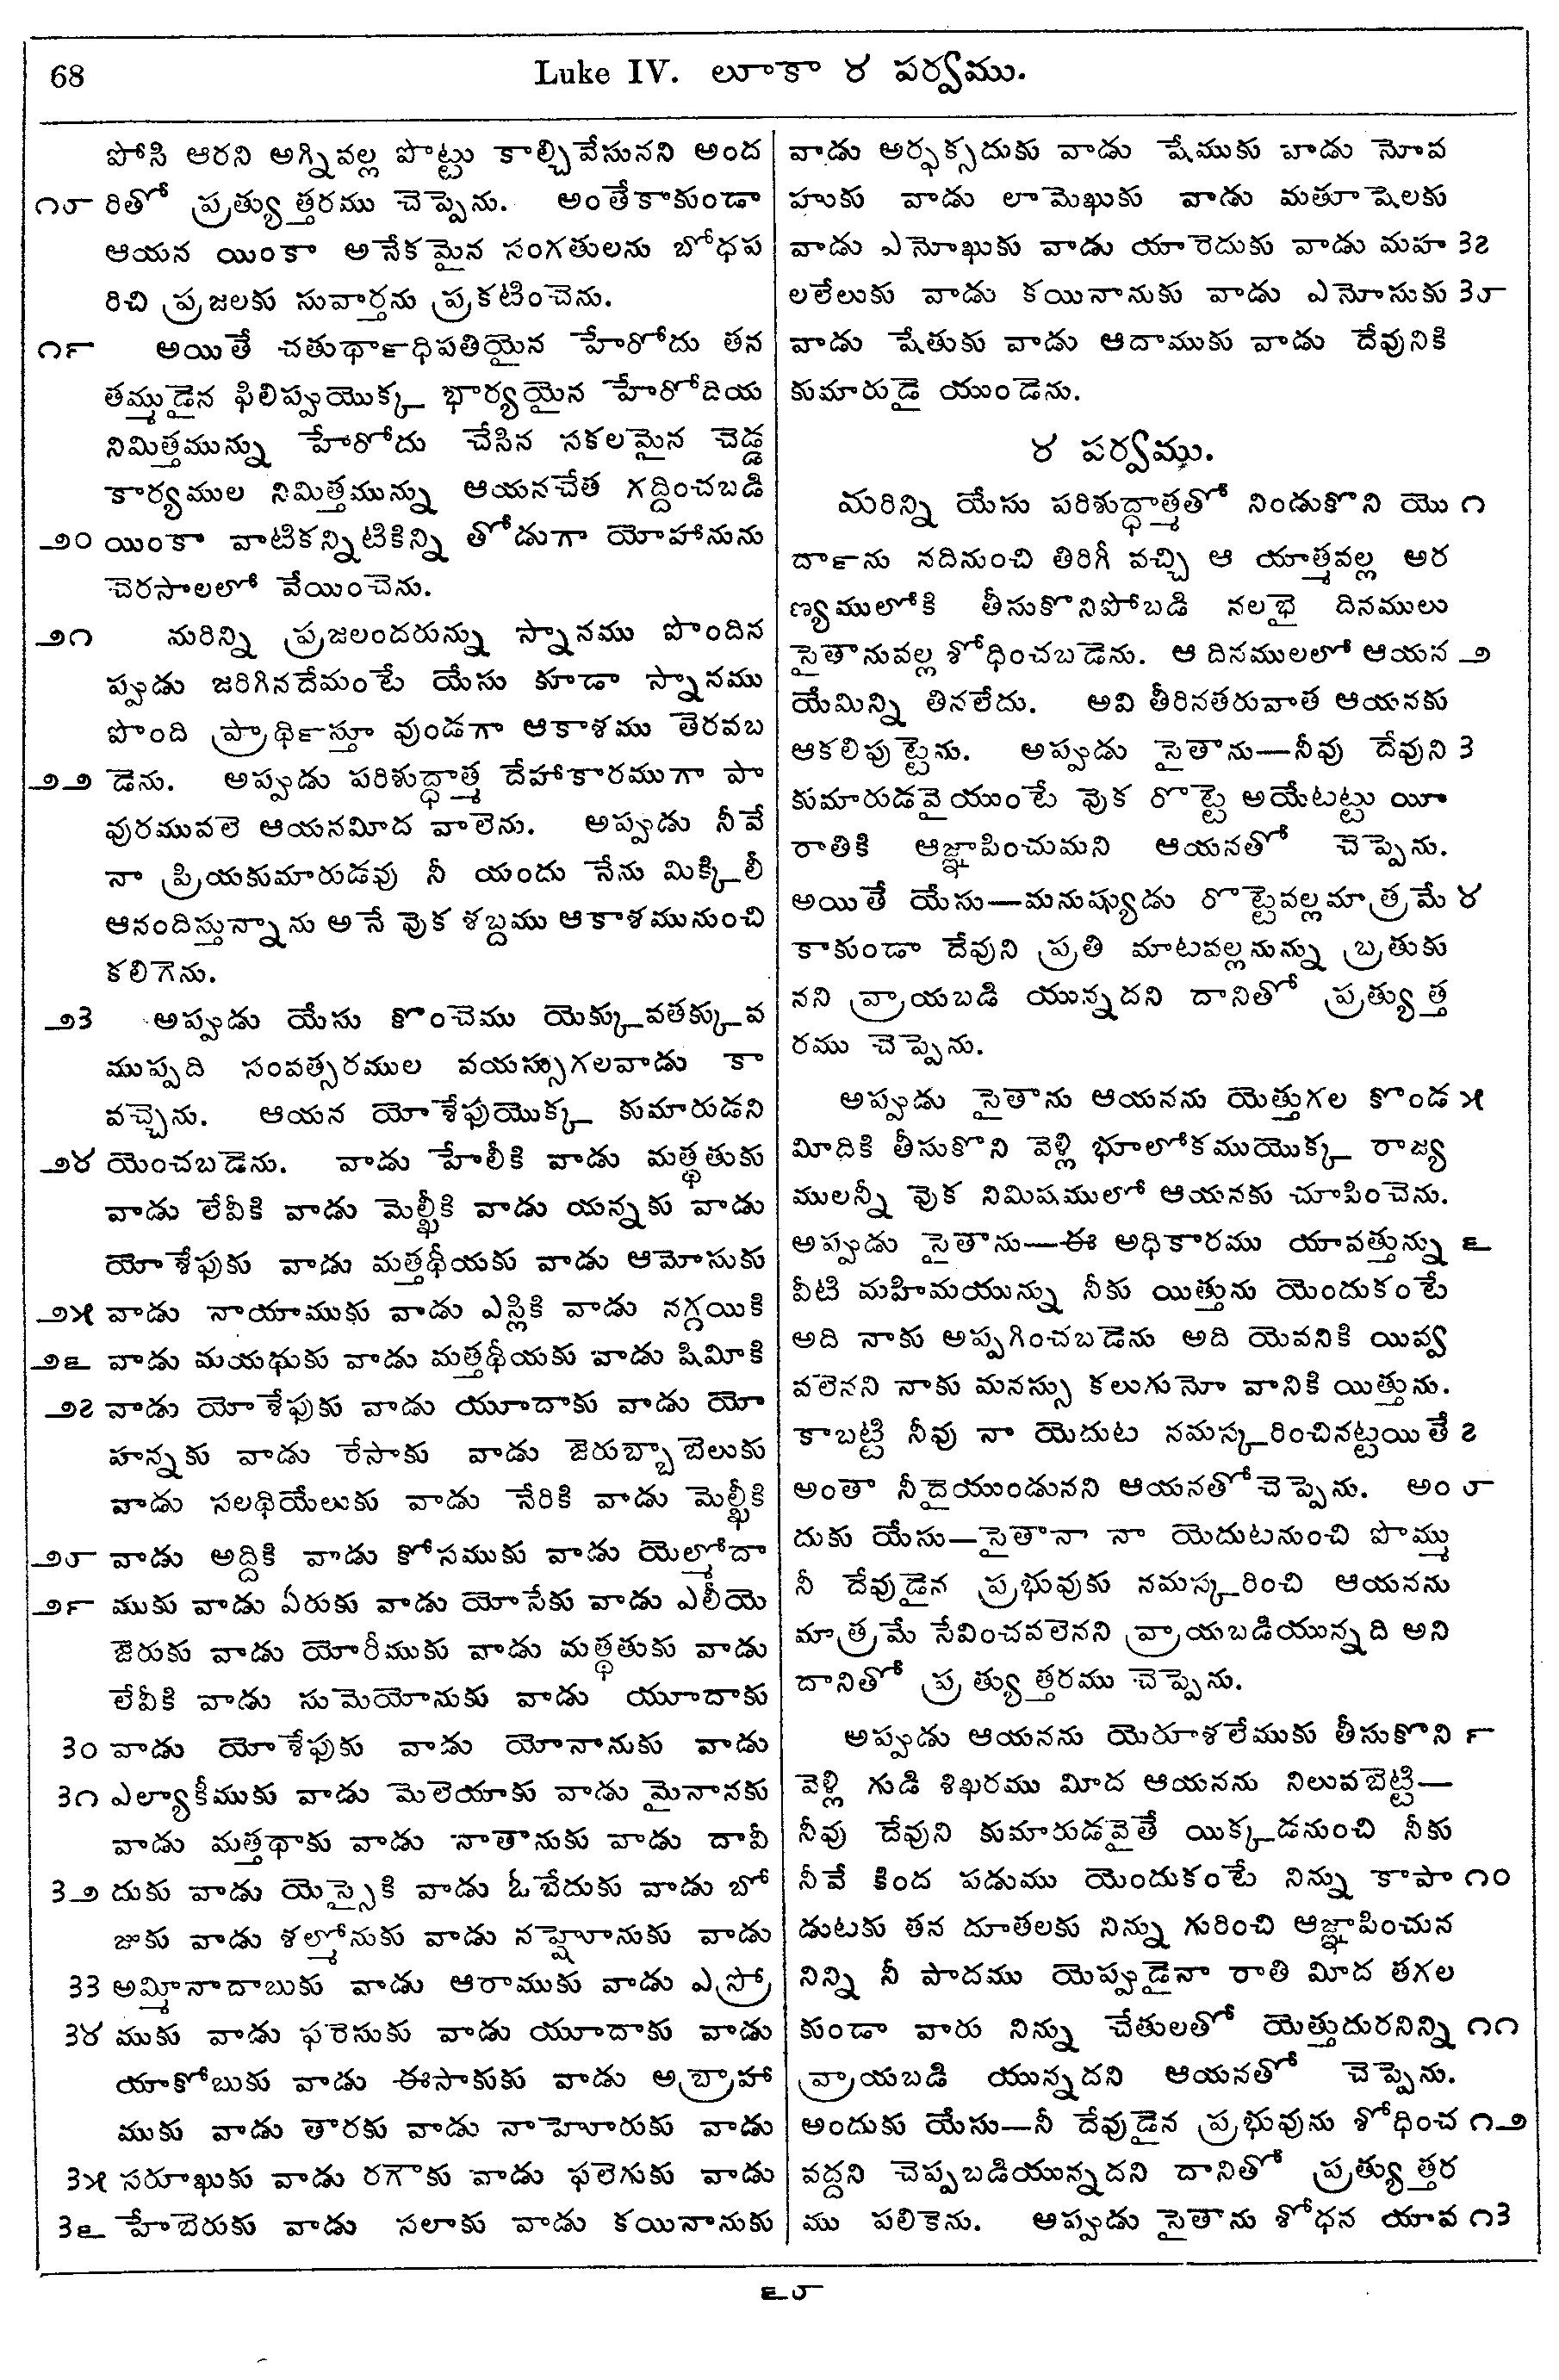 68
Luke IV. లూకా ౪ పర్వము.
పోసి ఆరని అగ్నివల్ల పొట్టు కాల్చివేసునని అంద
౧౮ రితో ప్రత్యుత్తరము చెప్పెను. అంతేకాకుండా
ఆయన యింకా అనేకమైన సంగతులను బోధప
రిచి ప్రజలకు సువార్తను ప్రకటించెను.
౧౯ అయితే చతుథాѓధిపతియైన హేరోదు తన
తమ్ముడైన ఫిలిప్పుయొక్క భార్యయైన హేరోదియ
నిమిత్తమున్ను హేరోదు చేసిన సకలమైన చెడ్డ
కార్యముల నిమిత్తమున్ను ఆయనచేత గద్దించబడి
౨౦ యింకా వాటికన్నిటికిన్ని తోడుగా యోహానును
చెరసాలలో వేయించెను.
౨౧ మరిన్ని ప్రజలందరున్ను స్నానము పొందిన
ప్పుడు జరిగినదేమంటే యేసు కూడా స్నానము
పొంది ప్రాథిѓస్తూ వుండగా ఆకాశము తెరవబ
౨౨ డెను. అప్పుడు పరిశుద్ధాత్మ దేహాకారముగా పా
వురమువలె ఆయనమీద వాలెను. అప్పుడు నీవే
నా ప్రియకుమారుడవు నీ యందు నేను మిక్కిలీ
ఆనందిస్తున్నాను అనే వుక శబ్దము ఆకాశమునుంచి
కలిగెను.
౨౩ అప్పుడు యేసు కొంచెము యెక్కువతక్కువ
ముప్పది సంవత్సరముల వయస్సుగలవాడు కా
వచ్చెను. ఆయన యోశేఫుయొక్క కుమారుడని
౨౪ యెంచబడెను. వాడు హేలీకి వాడు మత్థతుకు
వాడు లేవీకి వాడు మెల్ఖీకి వాడు యన్నకు వాడు
యోశేఫుకు వాడు మత్తథీయకు వాడు ఆమోసుకు
౨౫ వాడు నాయాముకు వాడు ఎస్లికి వాడు నగ్గయికి
౨౬ వాడు మయథుకు వాడు మత్తథీయకు వాడు షిమీకి
౨౭ వాడు యోశేఫుకు వాడు యూదాకు వాడు యో
హన్నకు వాడు రేసాకు వాడు జెరుబ్బాబెలుకు
వాడు సలథియేలుకు వాడు నేరికి వాడు మెల్ఖీకి
౨౮ వాడు అద్దికి వాడు కోసముకు వాడు యెల్మోదా
౨౯ ముకు వాడు ఏరుకు వాడు యోసేకు వాడు ఎలీయె
జెరుకు వాడు యోరీముకు వాడు మత్థతుకు వాడు
లేవీకి వాడు సుమెయోనుకు వాడు యూదాకు
౩౦ వాడు యోశేఫుకు వాడు యోనానుకు వాడు
౩౧ ఎల్యాకీముకు వాడు మెలెయాకు వాడు మైనానకు
వాడు మత్తథాకు వాడు నాతానుకు వాడు దావీ
౩౨ దుకు వాడు యెస్సైకి వాడు ఓబేదుకు వాడు బో
జుకు వాడు శల్మోనుకు వాడు నహ్షోనుకు వాడు
౩౩ అమ్మినాదాబుకు వాడు ఆరాముకు వాడు ఎస్రో
౩౪ ముకు వాడు ఫరెసుకు వాడు యూదాకు వాడు
యాకోబుకు వాడు ఈసాకుకు వాడు అబ్రాహా
ముకు వాడు తారకు వాడు నాహోరుకు వాడు
౩౫ సరూఖుకు వాడు రగౌకు వాడు ఫలెగుకు వాడు
౩౬ హేబెరుకు వాడు సలాకు వాడు కయినానుకు
వాడు అర్ఫక్సదుకు వాడు షేముకు వాడు నోవ
హుకు వాడు లామెఖుకు వాడు మతూషెలకు
వాడు ఎనోఖుకు వాడు యారెదుకు వాడు మహ ౩౭
లలేలుకు వాడు కయినానుకు వాడు ఎనోసుకు ౩౮
వాడు షేతుకు వాడు ఆదాముకు వాడు దేవునికి
కుమారుడై యుండెను.
౪ పర్వము.
మరిన్ని యేసు పరిశుద్ధాత్మతో నిండుకొని యొ ౧
దాѓను నదినుంచి తిరిగీ వచ్చి ఆ యాత్మవల్ల అర
ణ్యములోకి తీసుకొనిపోబడి నలభై దినములు
సైతానువల్ల శోధించబడెను. ఆ దినములలో ఆయన ౨
యేమిన్ని తినలేదు. అవి తీరినతరువాత ఆయనకు
ఆకలిపుట్టెను. అప్పుడు సైతాను—నీవు దేవుని ౩
కుమారుడవైయుంటే వుక రొట్టె అయేటట్టు యీ
రాతికి ఆజ్ఞాపించుమని ఆయనతో చెప్పెను.
అయితే యేసు—మనుష్యుడు రొట్టెవల్లమాత్రమే ౪
కాకుండా దేవుని ప్రతి మాటవల్లనున్ను బ్రతుకు
నని వ్రాయబడి యున్నదని దానితో ప్రత్యుత్త
రము చెప్పెను.
అప్పుడు సైతాను ఆయనను యెత్తుగల కొండ ౫
మీదికి తీసుకొని వెళ్లి భూలోకముయొక్క రాజ్య
ములన్నీ వుక నిమిషములో ఆయనకు చూపించెను.
అప్పుడు సైతాను—ఈ అధికారము యావత్తున్ను ౬
వీటి మహిమయున్ను నీకు యిత్తును యెందుకంటే
అది నాకు అప్పగించబడెను అది యెవనికి యివ్వ
వలెనని నాకు మనస్సు కలుగునో వానికి యిత్తును.
కాబట్టి నీవు నా యెదుట నమస్కరించినట్టయితే ౭
అంతా నీదైయుండునని ఆయనతోచెప్పెను. అం ౮
దుకు యేసు—సైతానా నా యెదుటనుంచి పొమ్ము
నీ దేవుడైన ప్రభువుకు నమస్కరించి ఆయనను
మాత్రమే సేవించవలెనని వ్రాయబడియున్నది అని
దానితో ప్రత్యుత్తరము చెప్పెను.
అప్పుడు ఆయనను యెరూశలేముకు తీసుకొని ౯
వెళ్లి గుడి శిఖరము మీద ఆయనను నిలువబెట్టి—
నీవు దేవుని కుమారుడవైతే యిక్కడనుంచి నీకు
నీవే కింద పడుము యెందుకంటే నిన్ను కాపా ౧౦
డుటకు తన దూతలకు నిన్ను గురించి ఆజ్ఞాపించున
నిన్ని నీ పాదము యెప్పుడైనా రాతి మీద తగల
కుండా వారు నిన్ను చేతులతో యెత్తుదురనిన్ని ౧౧
వ్రాయబడి యున్నదని ఆయనతో చెప్పెను.
అందుకు యేసు—నీ దేవుడైన ప్రభువును శోధించ ౧౨
వద్దని చెప్పబడియున్నదని దానితో ప్రత్యుత్తర
ము పలికెను. అప్పుడు సైతాను శోధన యావ ౧౩
౬౮